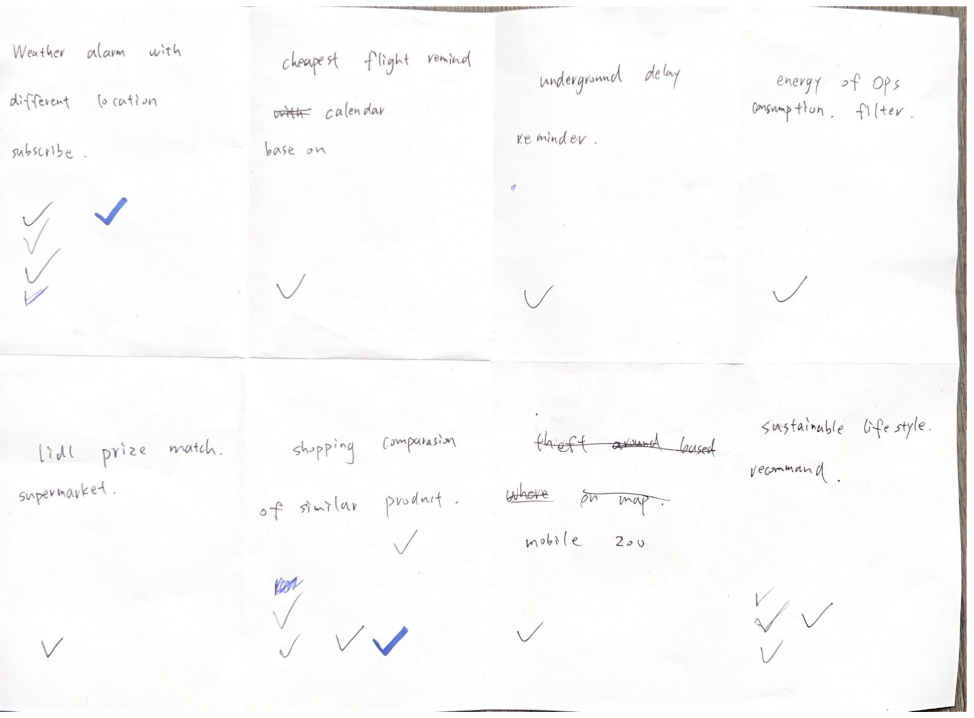 Weather alarm with
different location
subscribe.
cheapest flight remind
with calendar
base on
underground delay
reminder.
energy of OPs
consumption. filter.
lidl prize match.
supermarket.
shopping comparasion
of similar product.
theft around based
where on map.
mobile zoo
sustainable life style.
recommand.